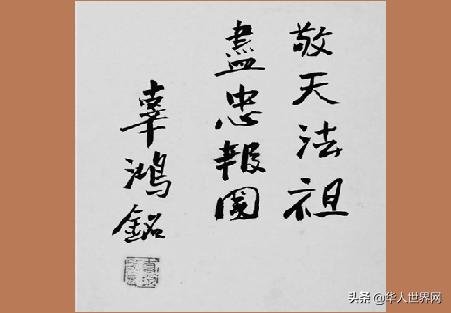 敬天法祖
盡忠報國
辜鴻銘
头条@华人世界网